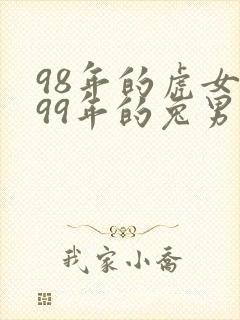 98年的虎女
99年的兔男
我家小乔